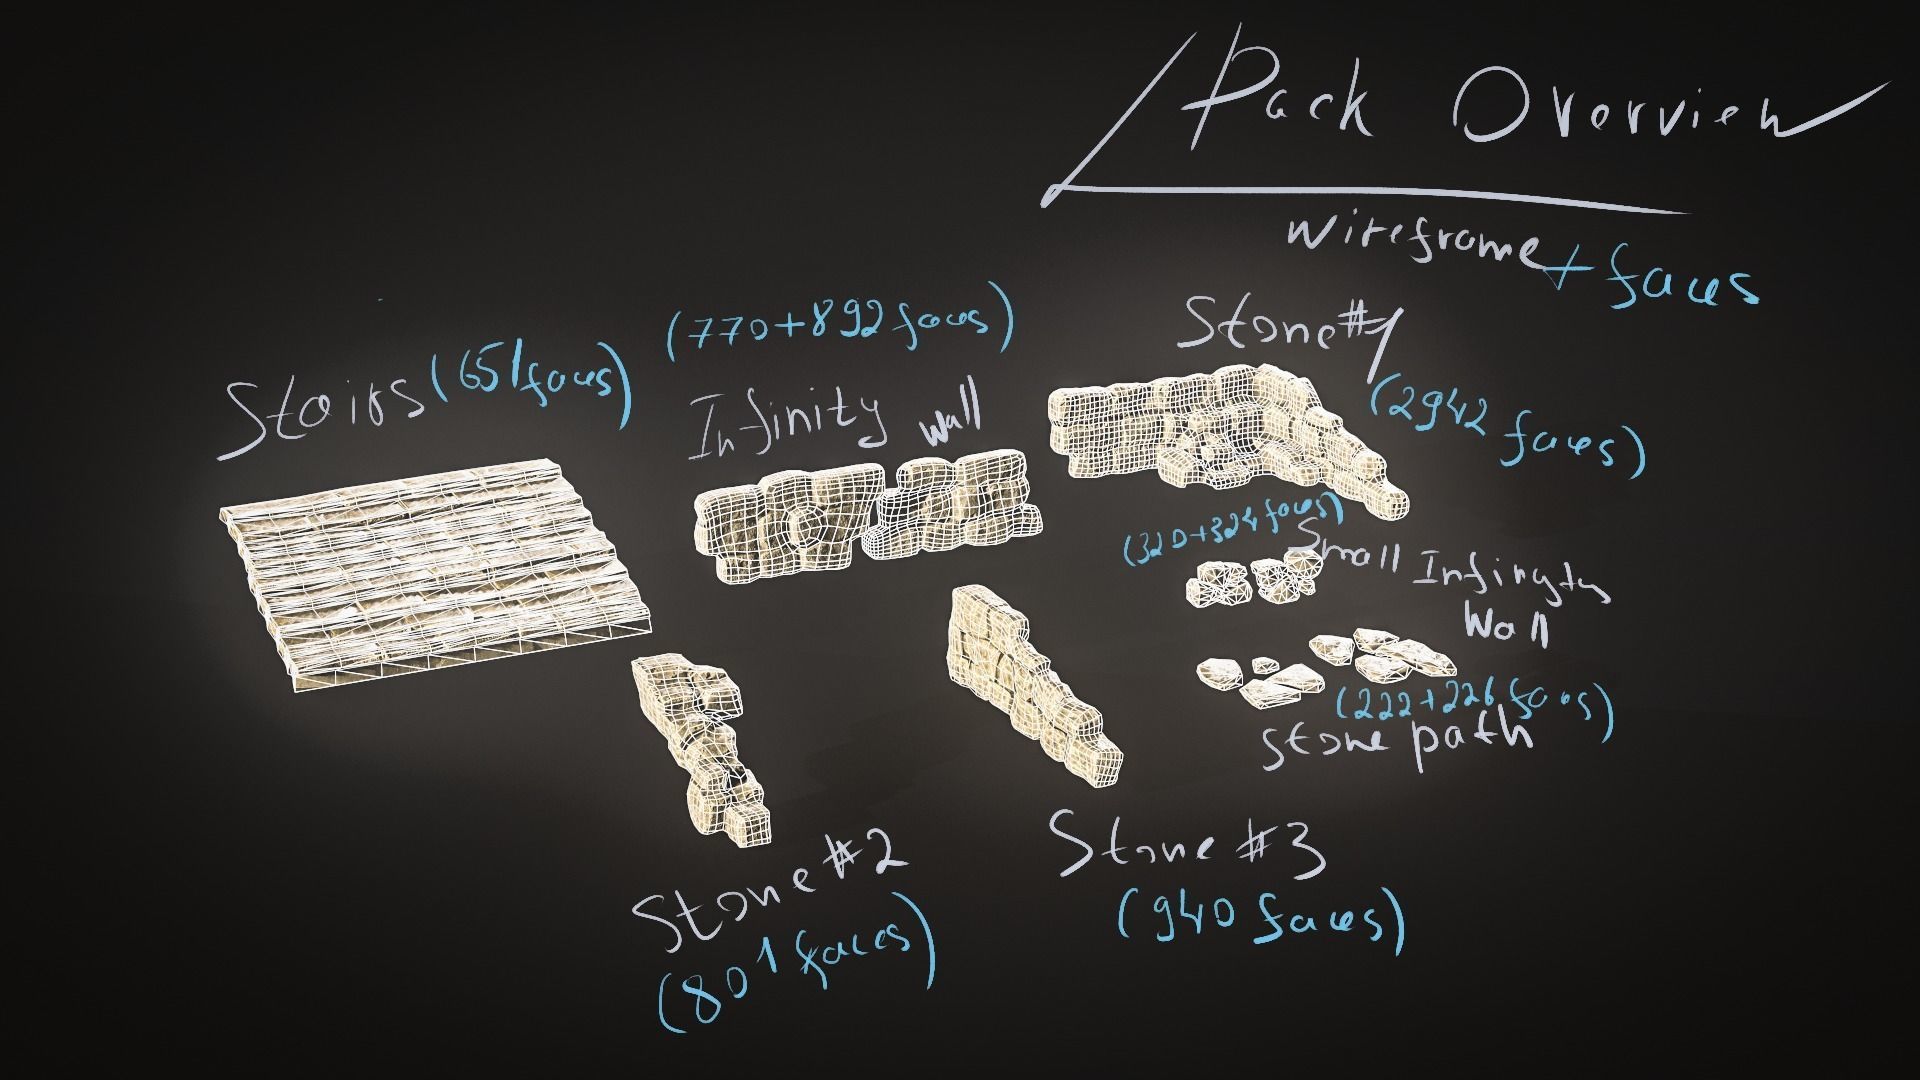 Pack Overview
wireframe + faces
Stairs (651 faces)
(770+892 faces)
Infinity wall
Stone #1
(2942 faces)
(320+324 faces)
Small Infinity
Wall
(222+226 faces)
Stone path
Stone #2
(801 faces)
Stone #3
(940 faces)